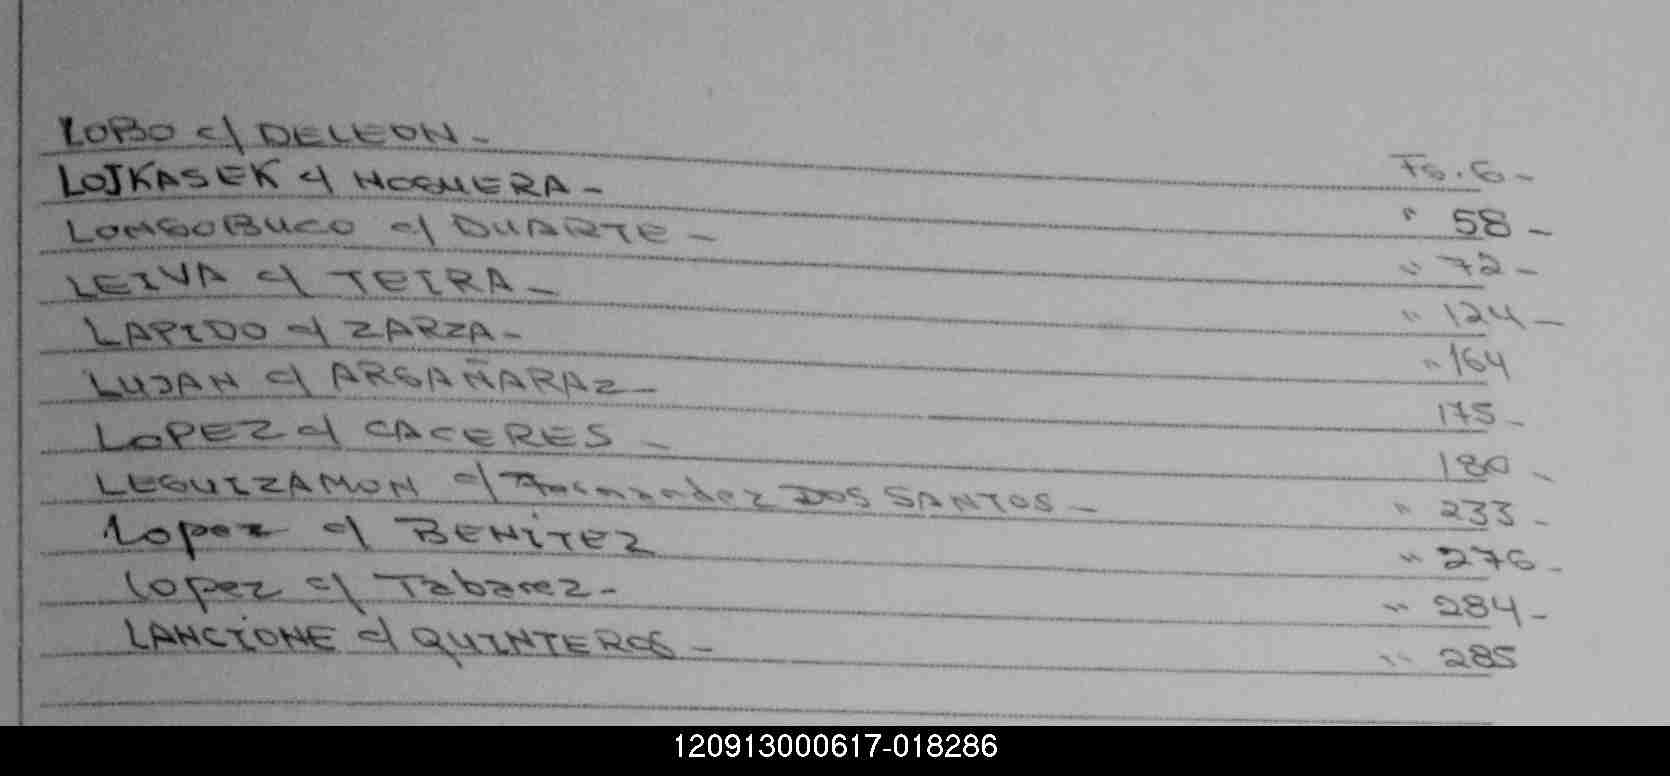 LOBO c/ DELEON - Fs. 6 -
LOJKASEK c/ NOGUERA - " 58 -
LONGOBUCO c/ DUARTE - " 72 -
LEIVA c/ TEIRA - " 124 -
LAPIDO c/ ZARZA - " 164
LUJAN c/ ARGAÑARAZ - 175 -
LOPEZ c/ CACERES - 180 -
LEGUIZAMON c/ DOS SANTOS - " 233 -
Lopez c/ BENITEZ " 276 -
Lopez c/ Tabarez - " 284 -
LANCIONE c/ QUINTEROS - " 285
120913000617-018286